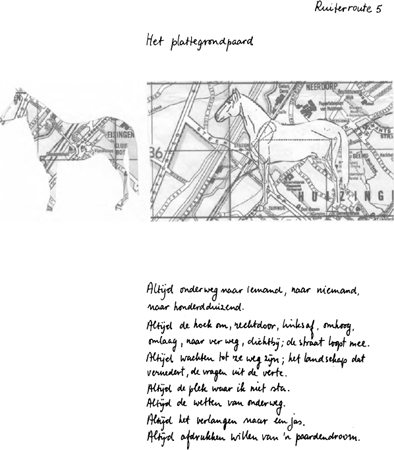 Ruiterroute 5
Het plattegrondpaard
HEERDORP
EISINGEN
36
HUIZINGE
Altijd onderweg naar iemand, naar niemand,
naar honderdduizend.
Altijd de hoek om, rechtdoor, linksaf, omhoog,
omlaag, naar ver weg, dichtbij; de straat loopt mee.
Altijd wachten tot ze weg zijn; het landschap dat
verwedert, de vragen uit de verte.
Altijd de plek waar ik niet sta.
Altijd de wetten van onderweg.
Altijd het verlangen naar een jas.
Altijd afdrukken willen van 'n paardendroom.